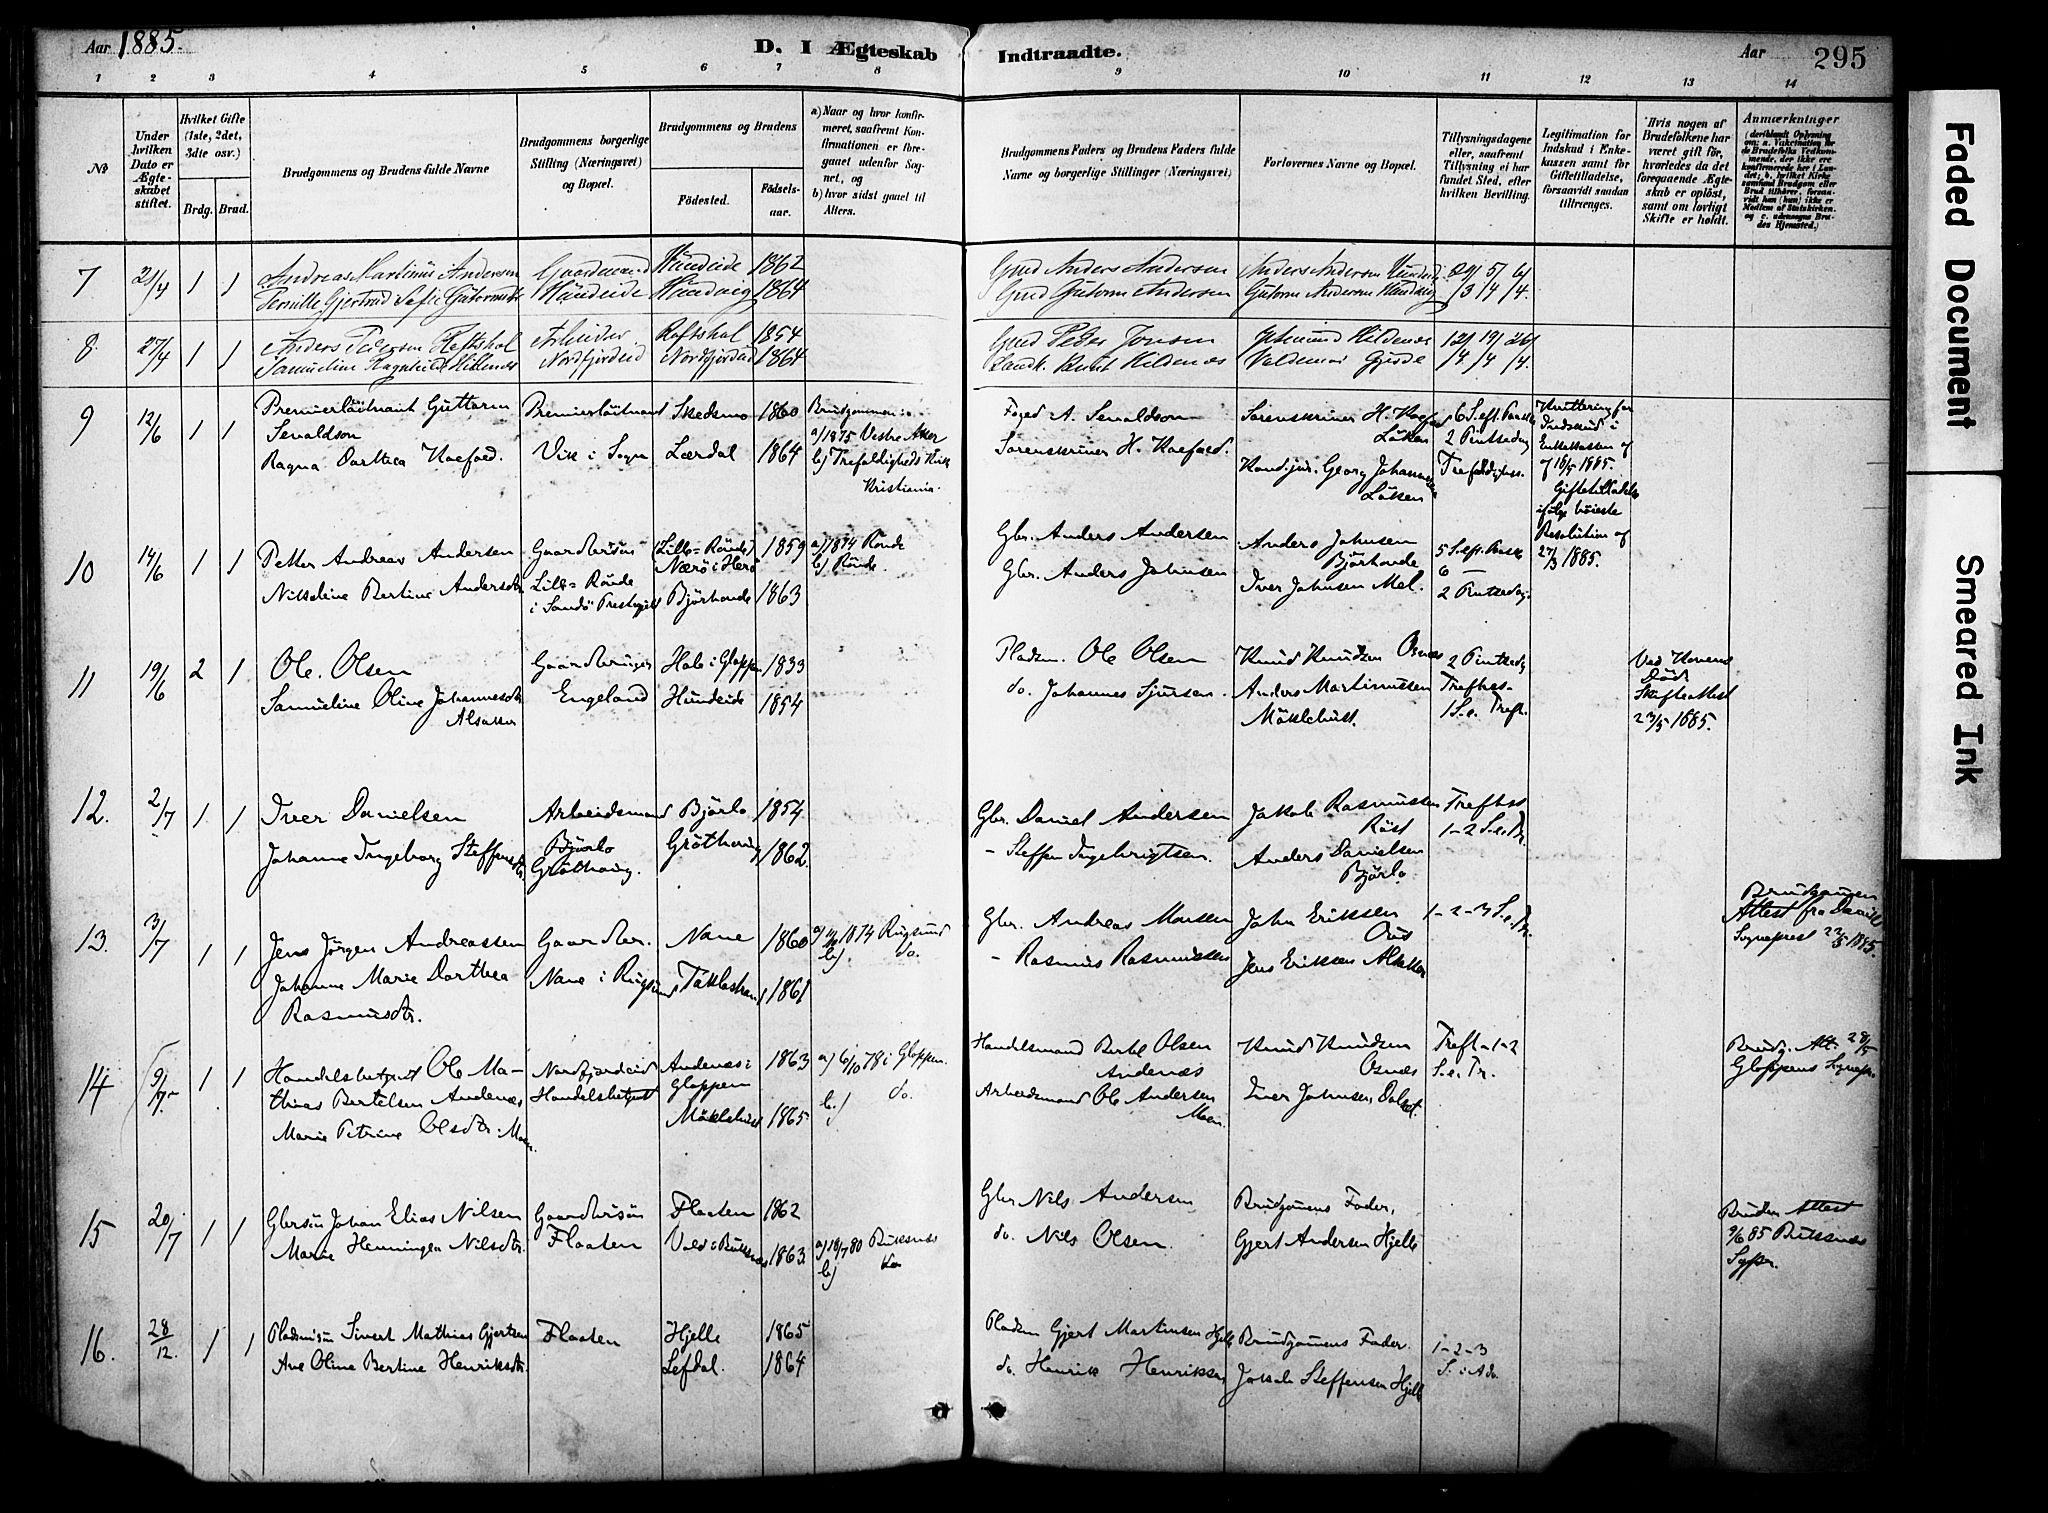 Aar 1885.
D. I Ægteskab Indtraadte.
Aar 295
1 2 3 4 5 6 7 8 9 10 11 12 13 14
No
Under hvilken Dato er Ægteskabet stiftet.
Hvilket Gifte (1ste, 2det, 3die osv.)
Brdg. Brud.
Brudgommens og Brudens fulde Navne
Brudgommens borgerlige Stilling (Næringsvei) og Bopæl.
Brudgommens og Brudens
Fødested.
Fødselsaar.
a) Naar og hvor konfirmeret, saafremt Konfirmationen er foregaaet udenfor Sognet, og
b) hvor sidst gaaet til Alters.
Brudgommens Faders og Brudens Faders fulde Navne og borgerlige Stillinger (Næringsvei)
Forlovernes Navne og Bopæl.
Tillysningsdagene eller, saafremt Tillysning ei har fundet Sted, efter hvilken Bevilling.
Legitimation for Indskud i Enkekassen samt for Giftetilladelse, forsaavidt saadan tiltrænges.
Hvis nogen af Brudefolkene har været gift før, hvorledes da det foregaaende Ægteskab er opløst, samt om lovligt Skifte er holdt.
Anmærkninger
7 21/4 1 1 Andreas Martinus Andersen Gaardmand Hundeide 1862 Gmd Anders Andersen Anders Andersen 29/3 5/4 6/4.
Pernille Gjertrud Sofie Hundeide Hundvig 1864 Gmd Guttorm Andersen Guttorm Andersen Hundvig
8. 27/4 1 1 Anders Pedersen Reftshol Arbeider Reftshol 1854 Gmd Peder Jonsen Hildenes 12/4 19/4 26/4.
Samueline Ragnhild Hildenes Nordfjordeid Nordfjordeid 1864 Landh. Hildenes Valdemar Gjerde
9 12/6 1 1 Premierløitnant Guttorm Premierløitnant Skedsmo 1860 Brudgommen: Foged A. Senaldson Sorenskriver H. Koefoed 6 S. eft. Paaske Kvittering for
Senaldson a) 1875 Vestre Aker Løken 2 Pintsedag Indskud i
Ragna Dorthea Koefoed. Vik i Sogn Lærdal 1864 b) Trefoldigheds Kirk Sorenskriver H. Koefoed. Kand. jur. Georg Johannessen Trefoldighedss. Enkekassen af
Kristiania. Løken 16/5 1885.
Giftetilladelse
ifølge høieste
Resolution af
27/3 1885.
10 14/6 1 1 Petter Andreas Andersen Gaardbr.søn (Lille-Rønde) 1859 a) 1874 Rönde Gbr. Anders Andersen Anders Johnsen 5 S. eft. Paask
Lille-Rönde Nærö i Herö b) Rönde. Björhovde 6 —
Nikoleine Bertine Andersdtr. i Sandö Prestegield Björhovde 1863 Gbr. Anders Johnsen Iver Johnsen Mel. 2 Pintsedag.
11 19/6 2 1 Ole Olsen Gaardbruger Hole i Gloppen 1833 Pladsm. Ole Olsen Knud Knudsen Osnæs 2 Pintsedag Ved Konens
Samueline Oline Johannesdtr. Engeland Hundeide 1854 do. Johannes Sjursen. Anders Martinussen Trefhss- Död.
Alsaker Möklebust. 1 S. e. Trefh. Skifteattest
23/5 1885.
12. 2/7 1 1 Iver Danielsen Arbeidsmand Björlo 1854 Gbr. Daniel Andersen Jakob Rasmussen Trefhss
Björlo Röst 1-2 S. e. Tr.
Johanne Ingeborg Steffensdtr. Gröthaug. Gröthaug 1862 - Steffen Ingebrigtsen. Anders Danielsen
Björlo.
13. 3/7 1 1 Jens Jörgen Andreassen Gaardbr. Nave 1860 a) 1874 Rugsund Gbr. Andreas Monsen John Eriksen 1-2-3 S. e. Tr. Brudgommens
b) do. Attest fra Daviks
Johanne Marie Dorthea Nave i Rugsund Taklestrand 1861 - Rasmus Rasmussen Jens Eriksen Alsaker Sogneprest 22/5 1885.
Rasmusdtr.
14 9/7 1 1 Handelsbetjent Ole Ma- Nordfjordeid Andenæs i 1863 a) 6/10 78 i Gloppen. Handelsmand Bertel Olsen Knud Knudsen Trefh-1-2 Brudg. Att. 28/5
thias Bertelsen Andenæs Handelsbetjent Gloppen b.) do. Andenæs Osnæs S. e. Tr. Gloppens Sognepr.
Marie Petrine Olsdtr. Moen. Möklebust 1865 Arbeidsmand Ole Andersen Iver Johnsen
Moen.
15 20/7 1 1 Gbrsön Johan Elias Nilsen Gaardbrsön Flaaten 1862 Gbr Nils Andersen Brudgommens Fader, Brudens Attest
Marie Henningea Nilsdtr. Flaaten Vold i Buksnæs 1863 a) 18/7 80 Buksnæs do. Nils Olsen. Gjert Andersen Hjelle 9/6 85 Buksnæs
b) do Sgpr.
16. 28/12. 1 1 Pladsmsön Sivert Mathias Gjertsen Flaaten Hjelle 1865 Pladsm Gjert Martinsen Hjelle Brudgommens Fader. 1-2-3
Ane Oline Bertine Henriksdtr. Lefdal. 1864 do. Henrik Henriksen Jakob Steffensen Hjelle S. i Adv.
Faded Document
Smeared Ink